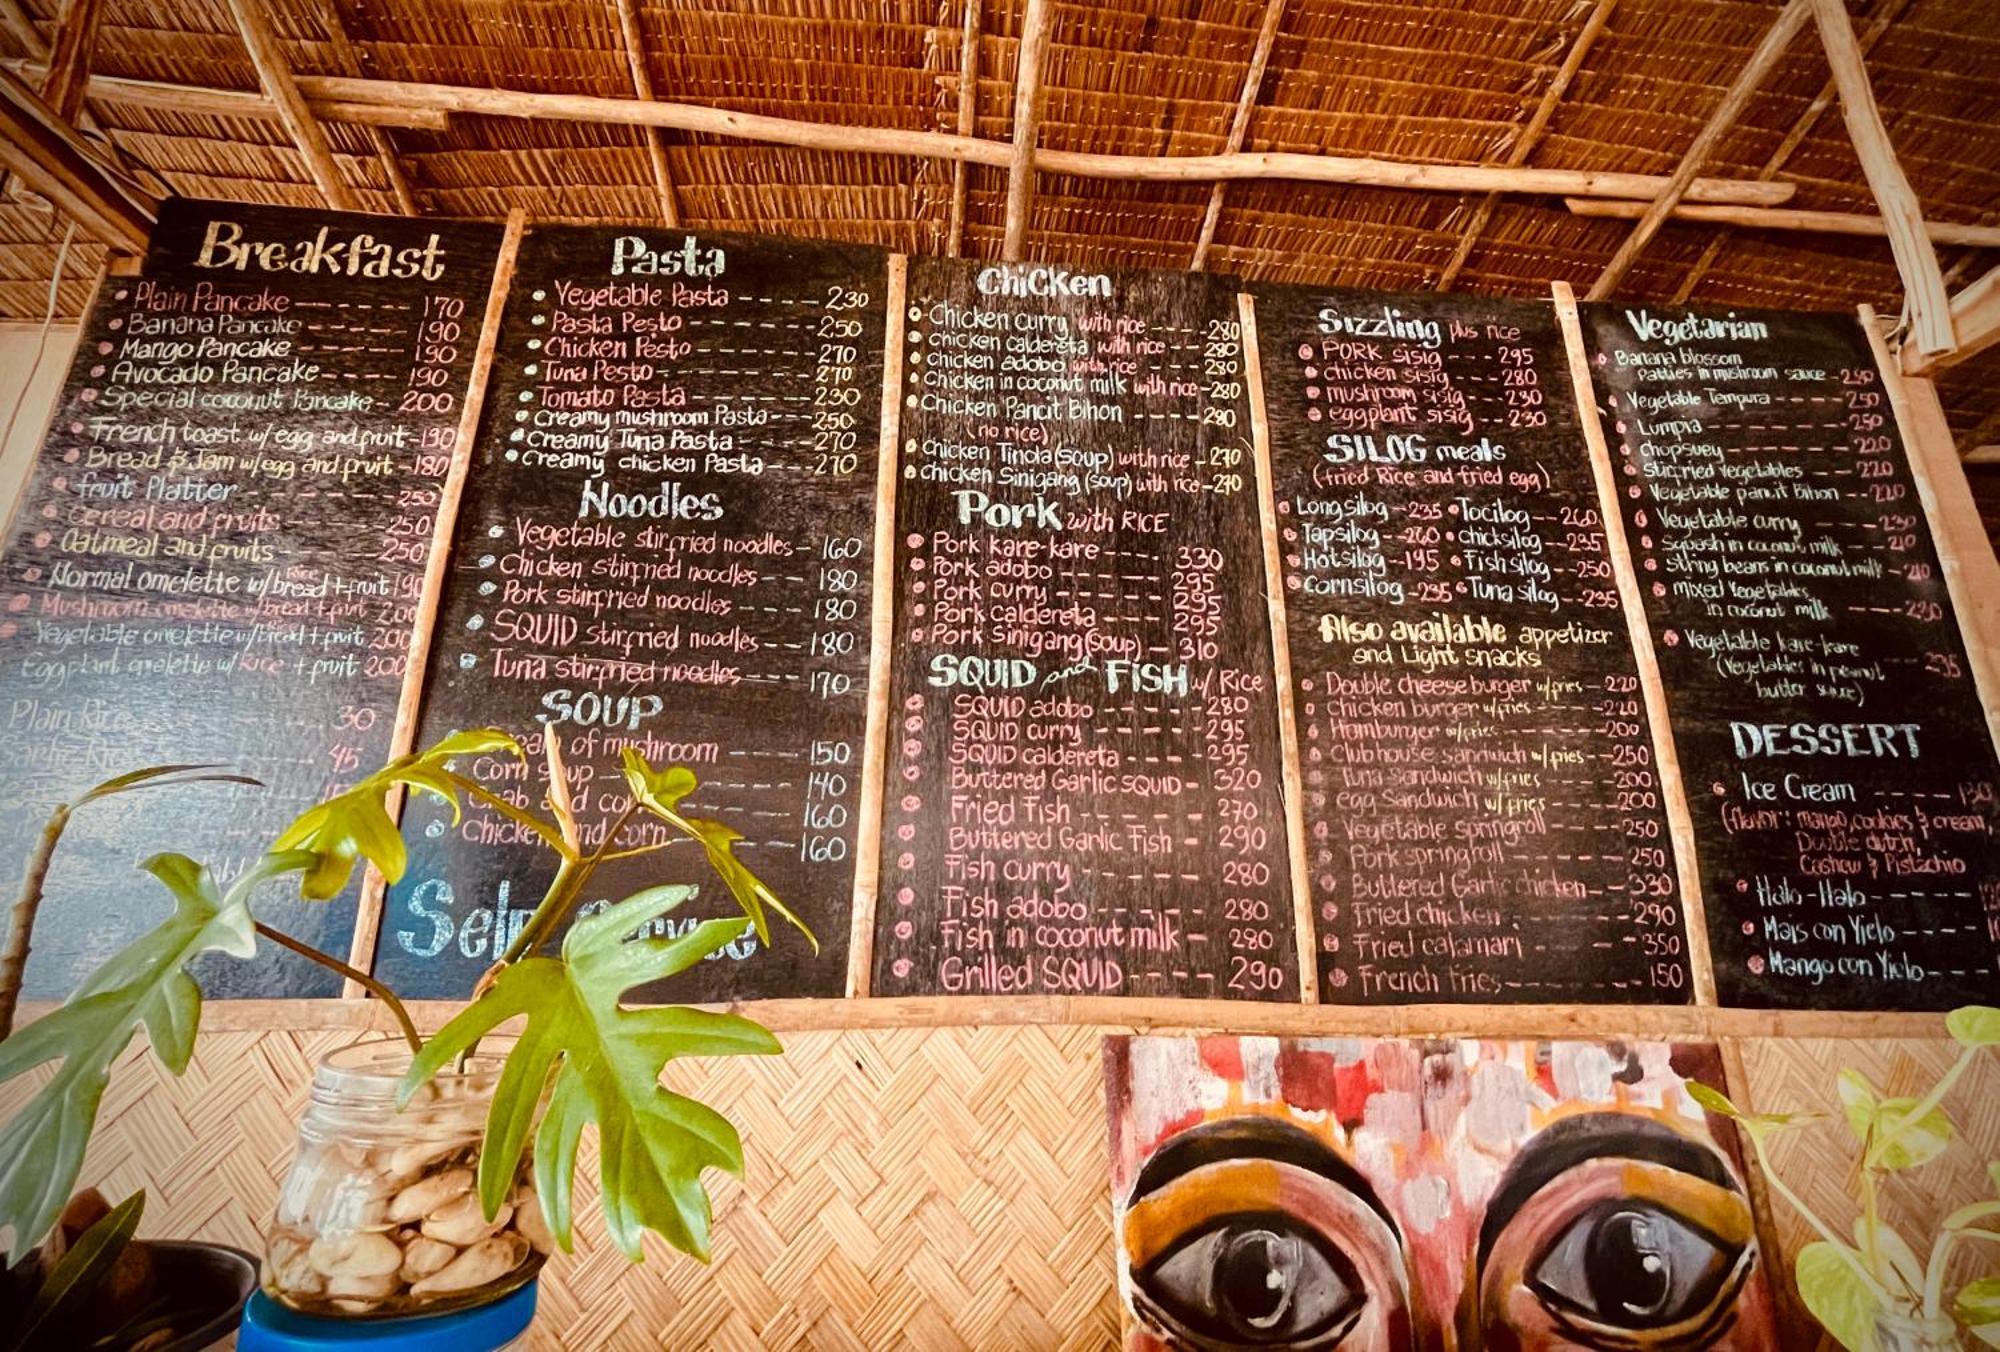 Breakfast
Plain Pancake 170
Banana Pancake 190
Mango Pancake 190
Avocado Pancake 190
Special coconut Pancake 200
French toast w/egg and fruit 190
Bread & Jam w/egg and fruit 180
fruit Platter 250
Cereal and fruits 250
Oatmeal and fruits 250
Normal omelette w/bread + fruit 190
Rice
Mushroom omelette w/bread + fruit 200
Vegetable omelette w/bread + fruit 200
Eggplant omelette w/Rice + fruit 200
Plain Rice 30
Garlic Rice 45
Pasta
Vegetable Pasta ---- 230
Pasta Pesto 250
Chicken Pesto 270
Tuna Pesto 270
Tomato Pasta 230
Creamy mushroom Pasta 250
Creamy Tuna Pasta 270
Creamy chicken Pasta 270
Noodles
Vegetable stirfried noodles 160
Chicken stirfried noodles 180
Pork stirfried noodles 180
SQUID stirfried noodles 180
Tuna stirfried noodles 170
SOUP
of mushroom 150
Corn soup 140
and 160
Chicken and corn 160
Self Service
ChiCKen
Chicken curry with rice 280
chicken caldereta with rice 280
chicken adobo with rice 280
Chicken in coconut milk with rice 280
Chicken Pancit Bihon 280
(no rice)
chicken Tinola (soup) with rice 270
chicken Sinigang (soup) with rice 270
Pork with RICE
Pork kare-kare 330
Pork adobo 295
Pork curry 295
Pork caldereta 295
Pork Sinigang (soup) 310
SQUID and FISH w/ Rice
SQUID adobo 280
SQUID curry 295
SQUID caldereta 295
Buttered Garlic SQUID 320
Fried Fish 270
Buttered Garlic Fish 290
Fish curry 280
Fish adobo 280
Fish in coconut milk 280
Grilled SQUID 290
Sizzling plus rice
PORK sisig 295
chicken sisig 280
mushroom sisig 230
eggplant sisig 230
SILOG meals
(fried Rice and fried egg)
Longsilog 235 Tocilog 260
Tapsilog 260 chicksilog 235
Hotsilog 195 Fishsilog 250
Cornsilog 235 Tuna silog 235
Also available appetizer
and Light snacks
Double cheese burger w/fries 220
chicken burger w/fries 220
Hamburger w/fries 200
Clubhouse sandwich w/fries 250
Tuna Sandwich w/fries 200
egg Sandwich w/fries 200
Vegetable springroll 250
Pork springroll 250
Buttered Garlic chicken 330
Fried chicken 290
Fried calamari 350
French fries 150
Vegetarian
Banana blossom
Patties in mushroom sauce
Vegetable Tempura 250
Lumpia 250
chopsuey 220
stirfried vegetables 220
Vegetable pancit Bihon 220
Vegetable curry 230
Squash in coconut milk 210
string beans in coconut milk 210
mixed vegetables
in coconut milk
Vegetable kare-kare
(Vegetables in peanut 235
butter sauce)
DESSERT
Ice Cream 130
(flavor: mango, cookies & cream,
Double dutch,
Cashew & Pistachio
Halo-Halo
Mais con Yielo
Mango con Yielo